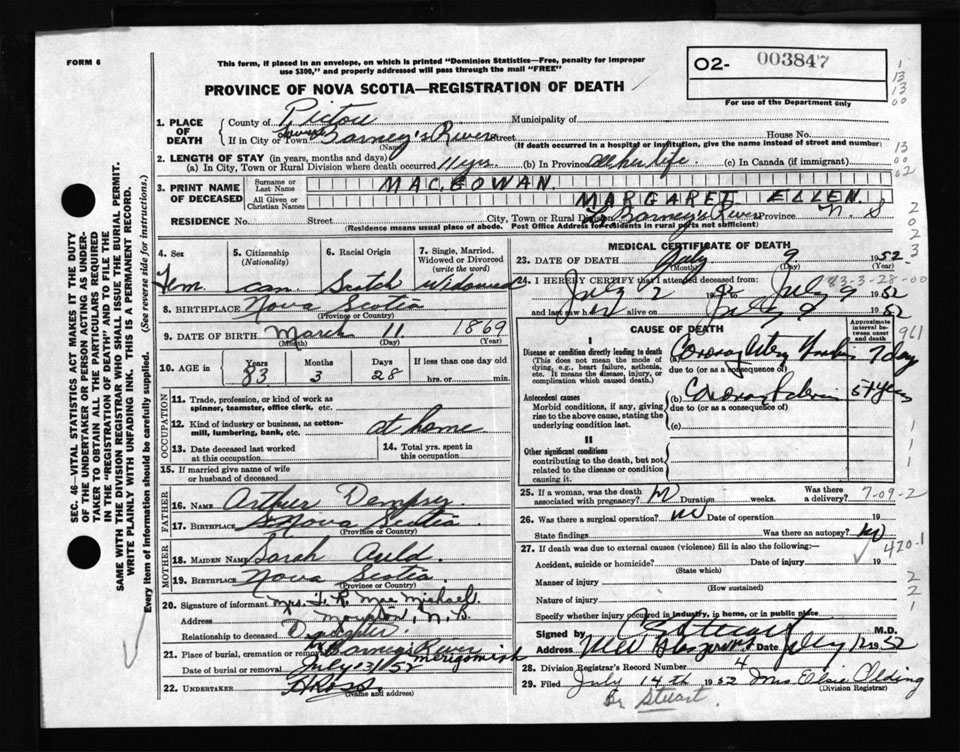 FORM 6
This form, if placed in an envelope, on which is printed "Dominion Statistics—Free, penalty for improper
use $300," and properly addressed will pass through the mail "FREE"
PROVINCE OF NOVA SCOTIA—REGISTRATION OF DEATH
O2- 003847
For use of the Department only
1. PLACE OF DEATH
County of Pictou Municipality of
If in City or Town Barney's River Street House No.
(Name) (If death occurred in a hospital or institution, give the name instead of street and number)
2. LENGTH OF STAY (in years, months and days)
(a) In City, Town or Rural Division where death occurred 11 yrs. (b) In Province all her life. (c) In Canada (if immigrant)
3. PRINT NAME OF DECEASED
Surname or Last Name MACGOWAN.
All Given or Christian Names MARGARET ELLEN.
RESIDENCE No. Street. City, Town or Rural Division Barney's River Province N. S
(Residence means usual place of abode. Post Office Address for residents in rural parts not sufficient)
4. Sex Fem.
5. Citizenship (Nationality) Can.
6. Racial Origin Scotch
7. Single, Married, Widowed or Divorced (write the word) Widowed
8. BIRTHPLACE Nova Scotia
(Province or Country)
9. DATE OF BIRTH March 11 1869
(Month) (Day) (Year)
10. AGE Years 83 Months 3 Days 28 If less than one day old
hrs. or min.
OCCUPATION
11. Trade, profession, or kind of work as
spinner, teamster, office clerk, etc.
12. Kind of industry or business, as cotton-
mill, lumbering, bank, etc. at home
13. Date deceased last worked
at this occupation
14. Total yrs. spent in
this occupation
15. If married give name of wife
or husband of deceased
FATHER
16. Name Arthur Dempsey
17. Birthplace Nova Scotia
(Province or Country)
MOTHER
18. Maiden Name Sarah Auld.
19. Birthplace Nova Scotia
(Province or Country)
20. Signature of informant Mrs. F. R. Mac Michael.
Address N. B.
Relationship to deceased Daughter.
21. Place of burial, cremation or removal Barney's River
Date of burial or removal July 13/52 Merigomish
22. UNDERTAKER H Ross.
(Name and address)
MEDICAL CERTIFICATE OF DEATH
23. DATE OF DEATH July 9 1952
(Month) (Day) (Year)
24. I HEREBY CERTIFY that I attended deceased from:
July 2 1952 to July 9 1952
and last saw h alive on July 9 1952
CAUSE OF DEATH
Approximate interval between onset and death
I
Disease or condition directly leading to death
(This does not mean the mode of dying, e.g., heart failure, asthenia, etc. It means the disease, injury, or complication which caused death.)
(a) Coronary 7 days
due to (or as a consequence of)
Antecedent causes
Morbid conditions, if any, giving rise to the above cause, stating the underlying condition last.
(b) Coronary
due to (or as a consequence of)
(c)
II
Other significant conditions
contributing to the death, but not related to the disease or condition causing it.
25. If a woman, was the death
associated with pregnancy? No Duration weeks. Was there a delivery?
26. Was there a surgical operation? No Date of operation 19
State findings Was there an autopsy? No
27. If death was due to external causes (violence) fill in also the following:—
Accident, suicide or homicide? Date of injury 19
(State which)
Manner of injury
(How sustained)
Nature of injury
Specify whether injury occurred in industry, in home, or in public place
Signed by M.D.
Address New Glasgow N.S. Date July 12 1952
28. Division Registrar's Record Number 4
29. Filed July 14th 1952 Mrs Elsie Olding
(Division Registrar)
Dr Stuart.
7-09-2
420-1
961
83-3-28-00
SEC. 46 — VITAL STATISTICS ACT MAKES IT THE DUTY
OF THE UNDERTAKER OR PERSON ACTING AS UNDER-
TAKER TO OBTAIN ALL THE PARTICULARS REQUIRED
IN THE "REGISTRATION OF DEATH" AND TO FILE THE
SAME WITH THE DIVISION REGISTRAR WHO SHALL ISSUE THE BURIAL PERMIT.
WRITE PLAINLY WITH UNFADING INK. THIS IS A PERMANENT RECORD.
Every item of information should be carefully supplied. (See reverse side for instructions.)